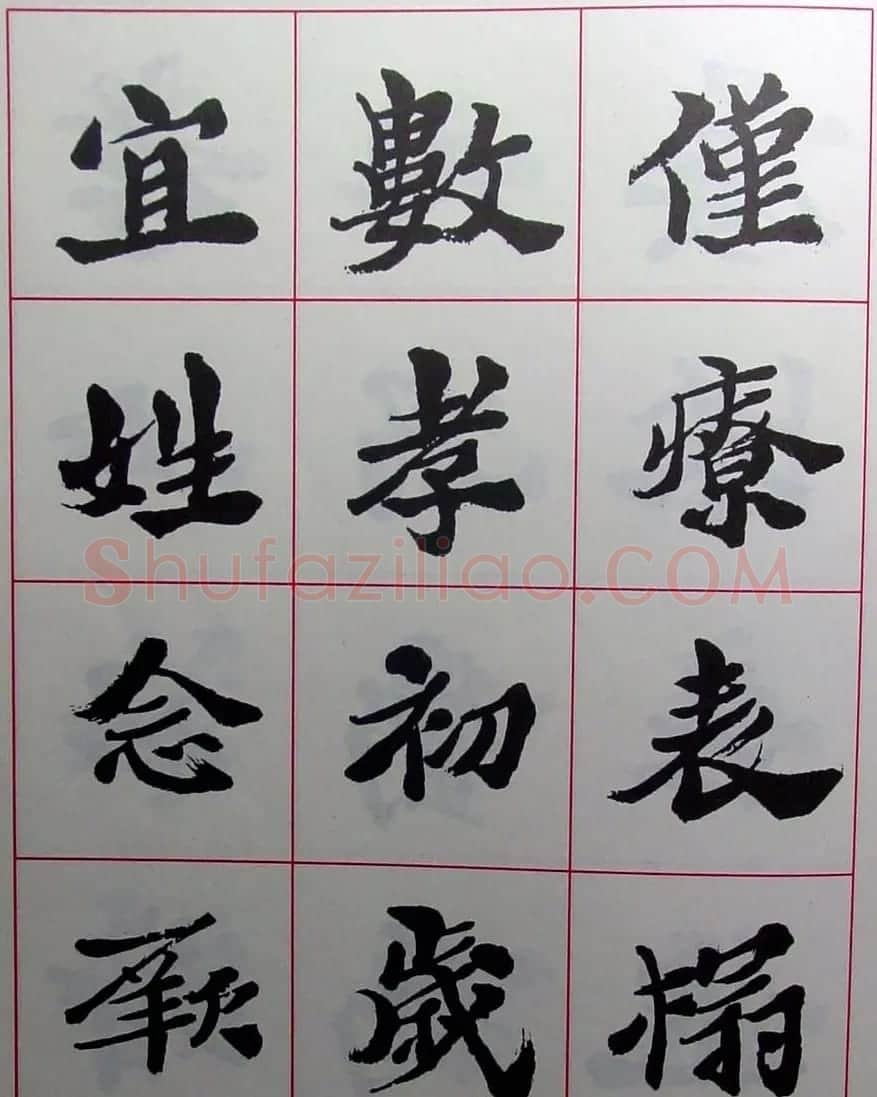 僅療表榻
數孝初歲
宜姓念厥
Shufaziliao.COM